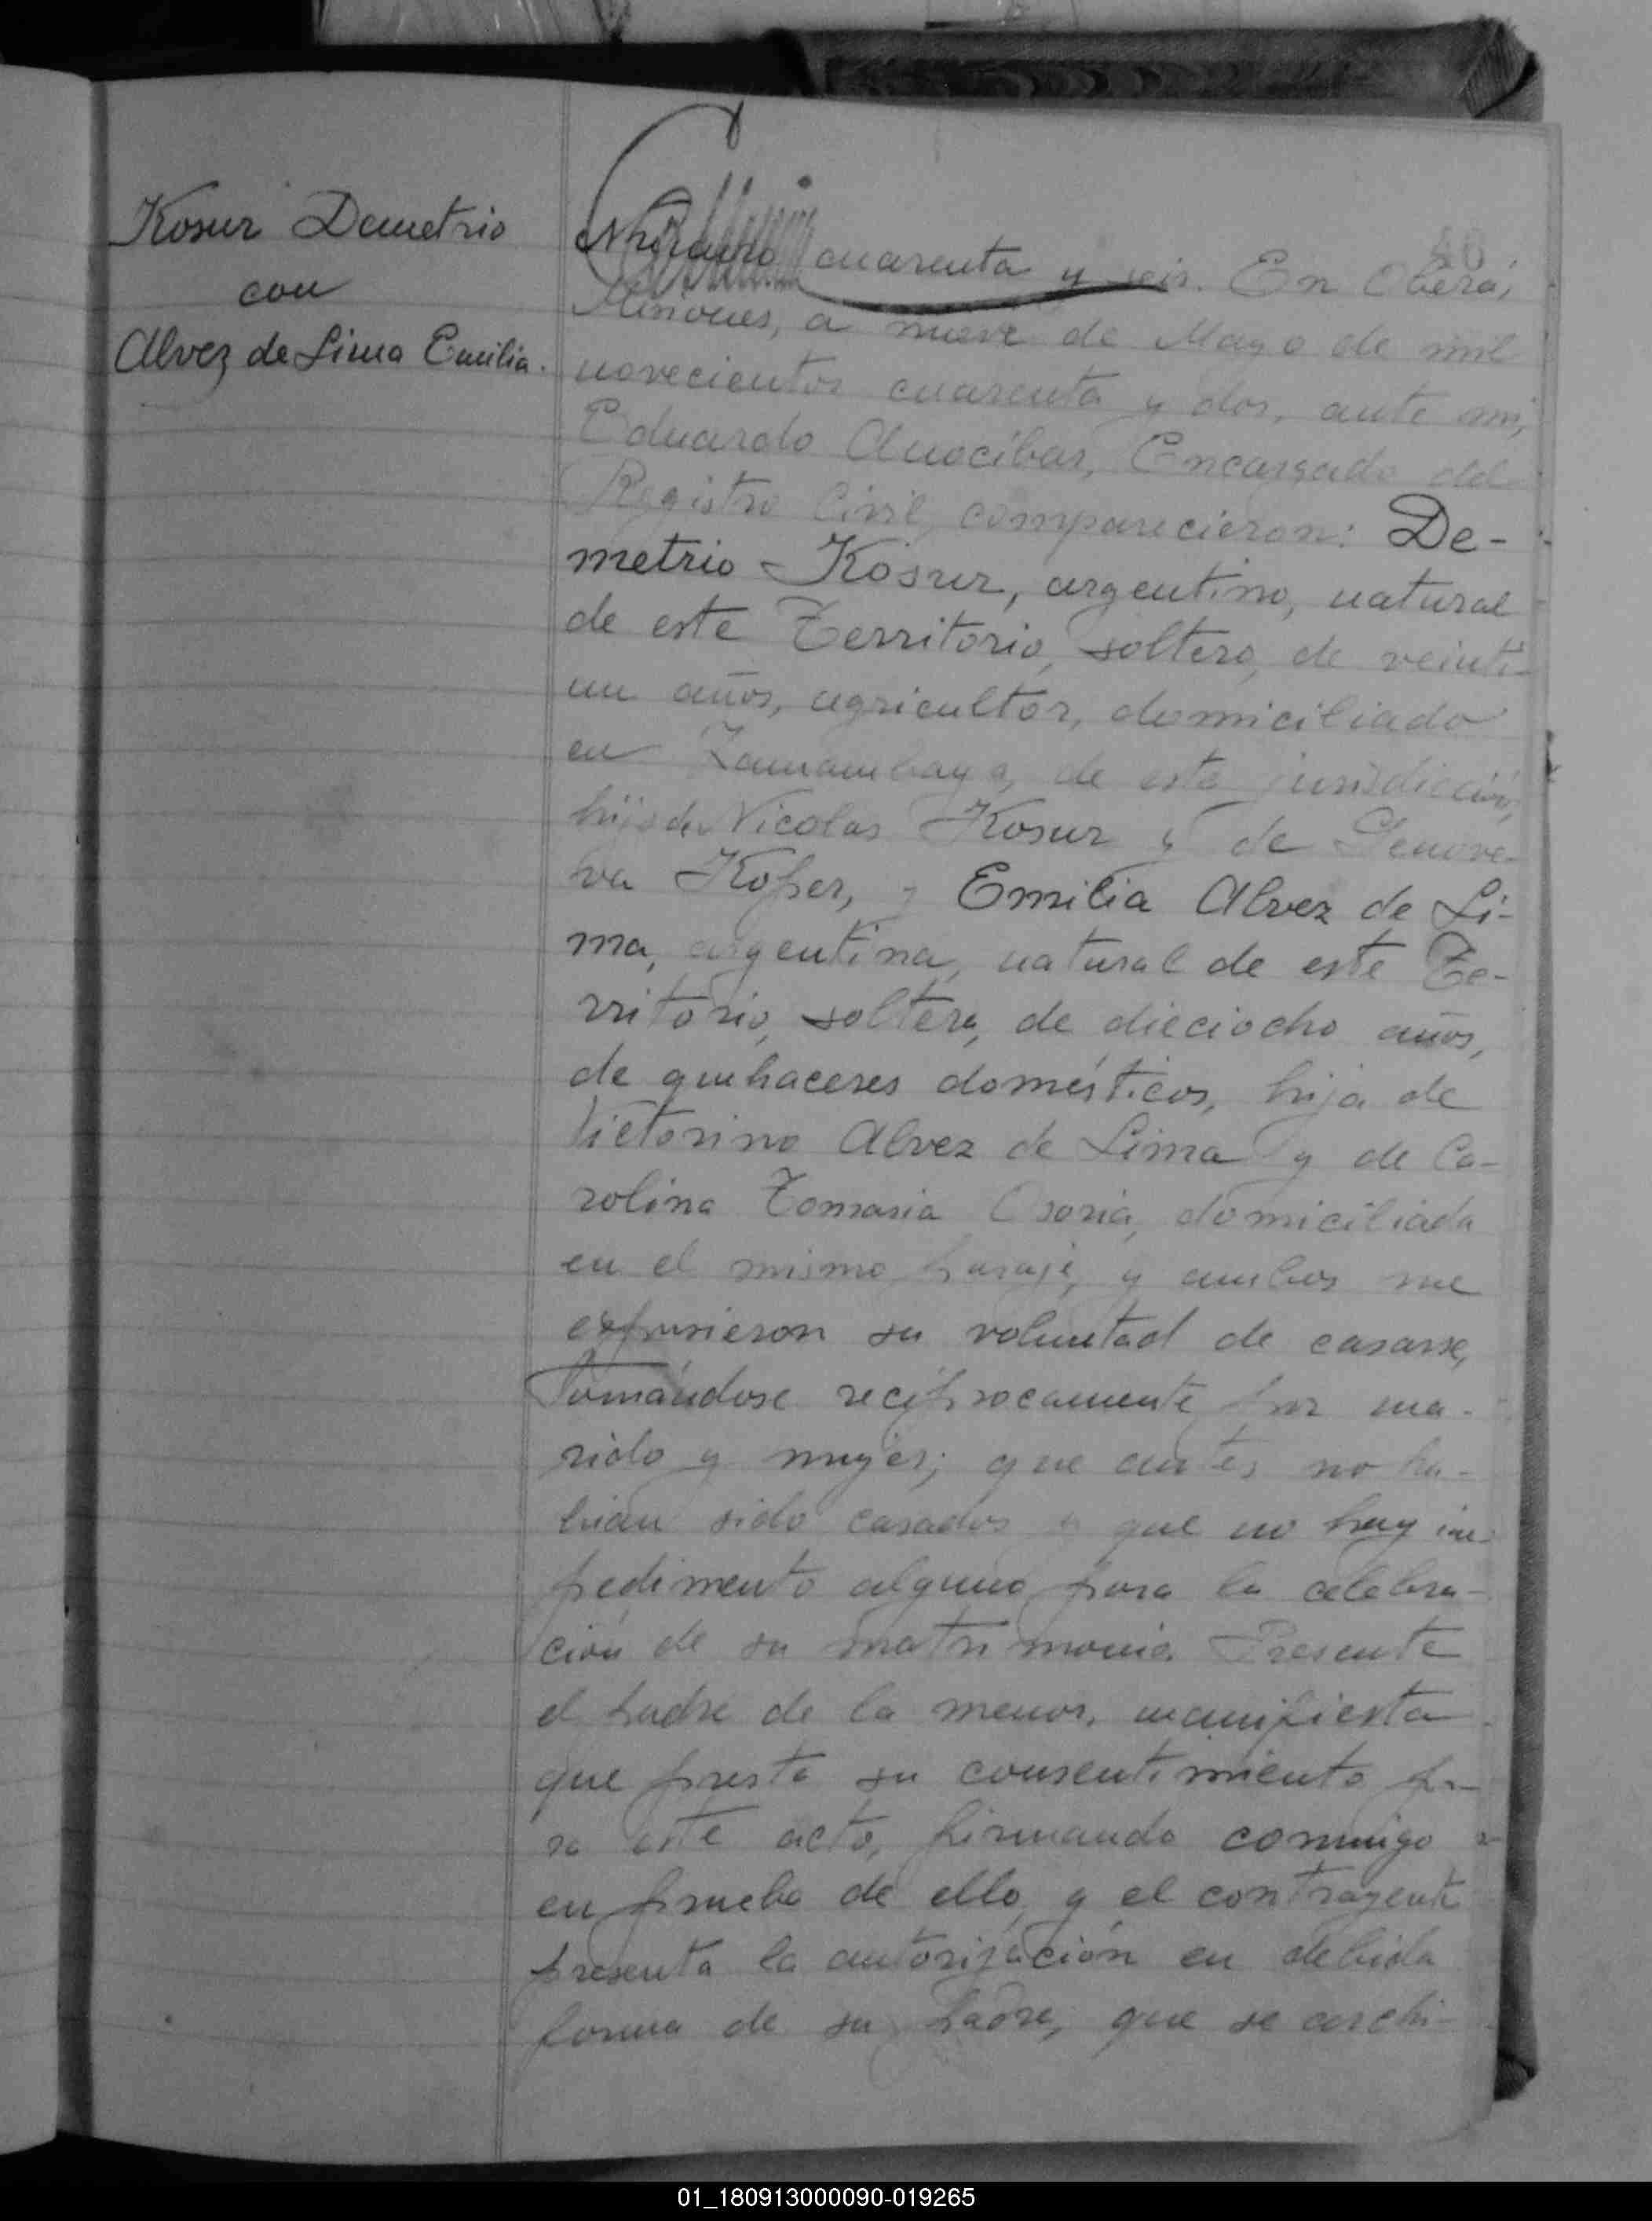 Kosur Demetrio
con
Alvez de Lima Emilia.
46
Número cuarenta y seis. En Oberá,
Misiones, a nueve de Mayo de mil
novecientos cuarenta y dos, ante mi,
Eduardo Anocibar, Encargado del
Registro Civil, comparecieron: De-
metrio Kosur, argentino, natural
de este Territorio, soltero, de veinti-
un años, agricultor, domiciliado
en de esta jurisdicción,
hijo de Nicolas Kosur y de Genove-
va Koper, y Emilia Alvez de Li-
ma, argentina, natural de este Te-
rritorio, soltera, de dieciocho años,
de quehaceres domésticos, hija de
Victorino Alvez de Lima y de Ca-
rolina Tomasia Osoria, domiciliada
en el mismo paraje, y ambos me
expusieron su voluntad de casarse,
Tomándose recíprocamente por ma-
rido y mujer; que antes no ha-
bian sido casados y que no hay im-
pedimento alguno para la celebra-
ción de su matrimonio. Presente
el padre de la menor, manifiesta
que presta su consentimiento pa-
ra este acto, firmando conmigo
en prueba de ello, y el contrayente
presenta la autorización en debida
forma de su padre, que se archi-
01_180913000090-019265